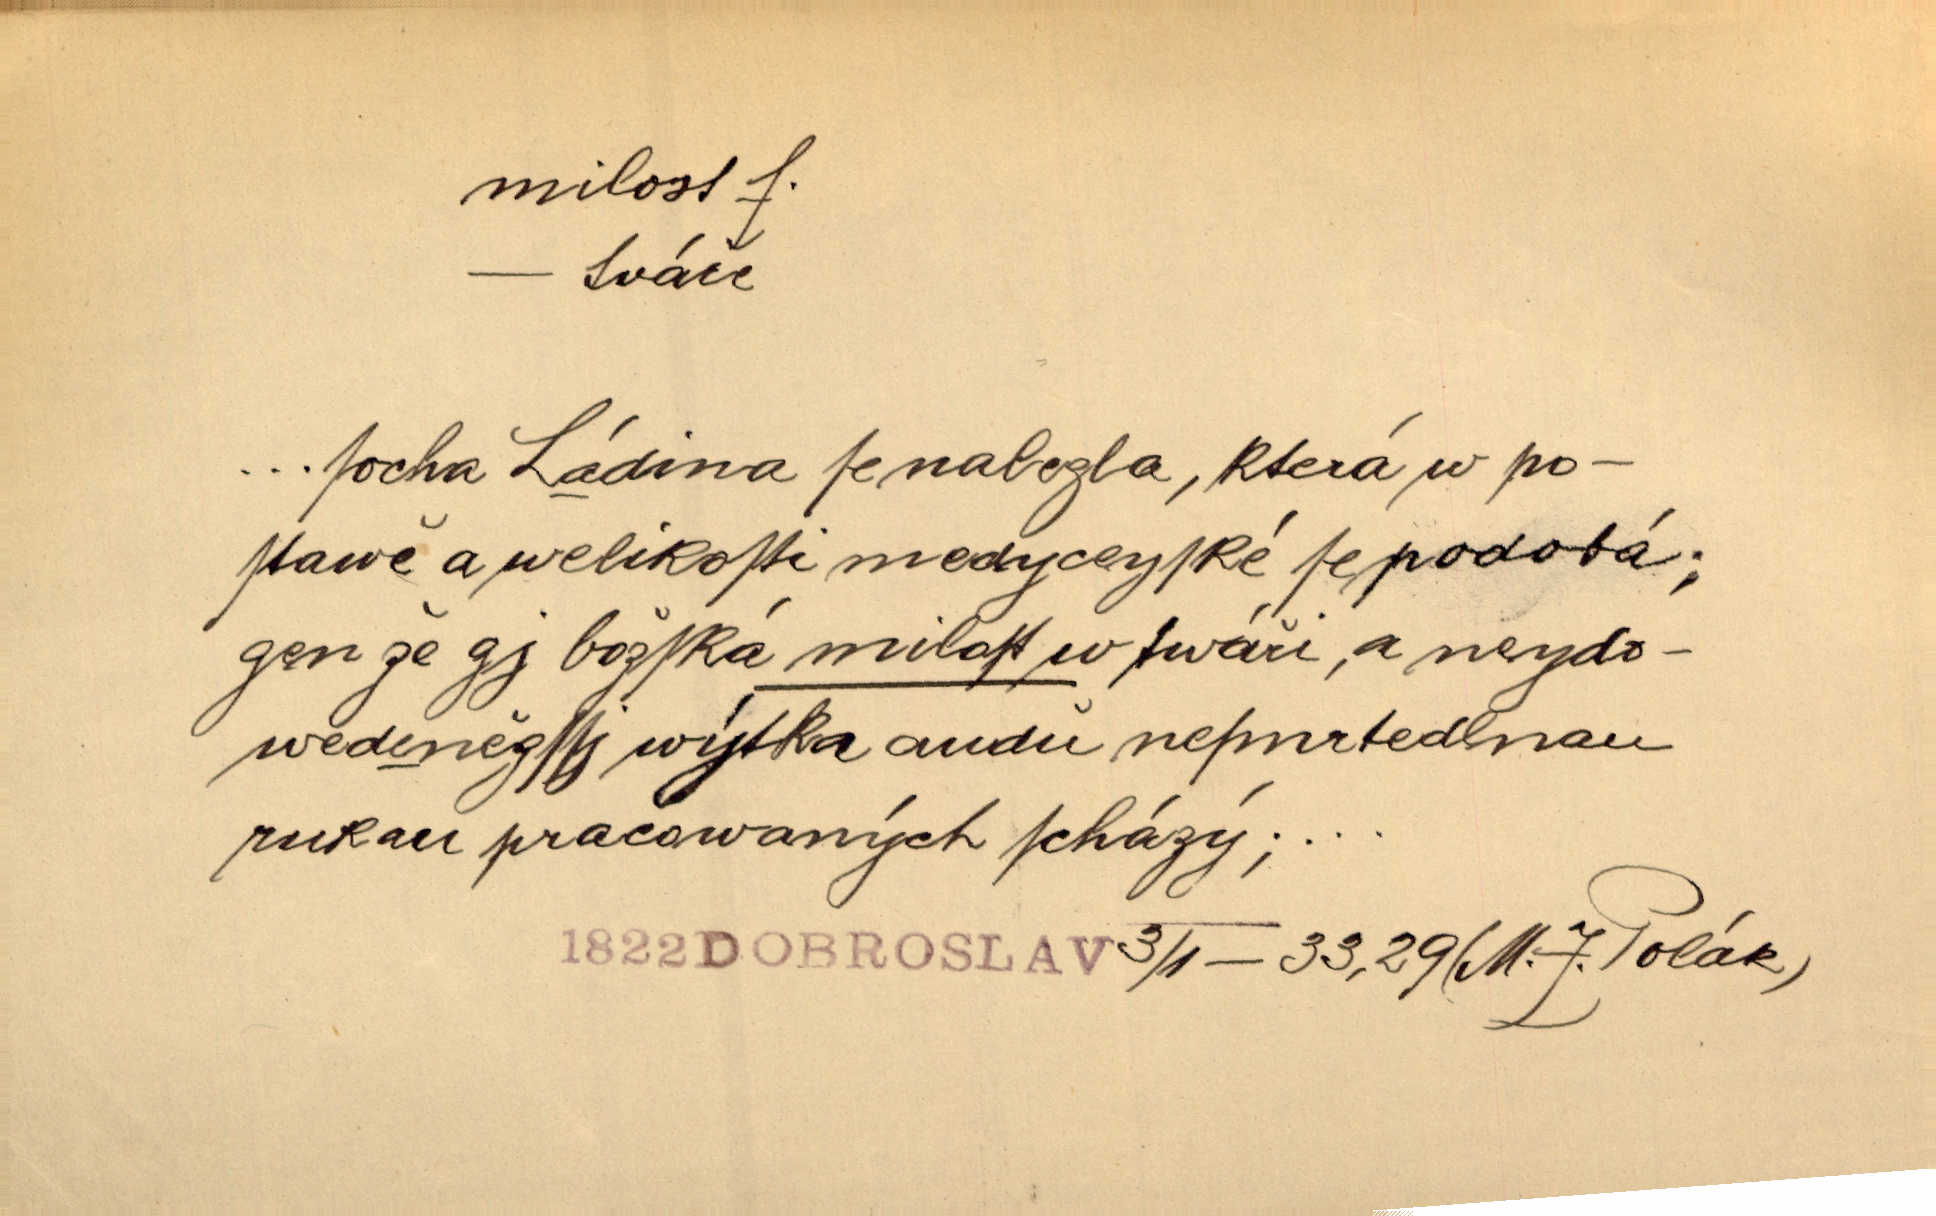 milost f.
— tváře
... ſocha Ládina ſe nalezla, která w po-
ſtawě a welikoſti medyceyſké ſe podobá;
gen že gj božſká miloſt w twáři, a neydo-
wedeněgſſj wýtka audů neſmrtedlnau
rukau pracowaných ſcházý; ...
1822 DOBROSLAV 3/1 — 33, 29 (M. J. Polák)